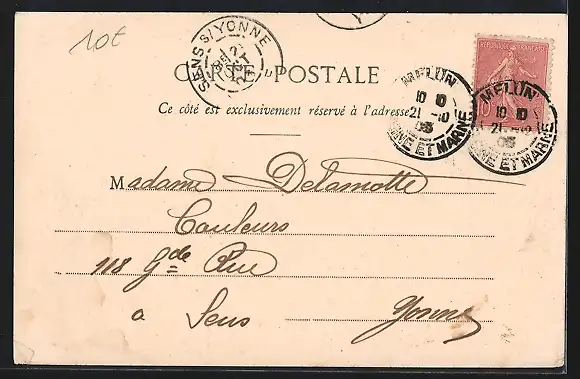 10€
SENS S/YONNE
CARTE POSTALE
RÉPUBLIQUE FRANÇAISE
MELUN
10
21 -10
03
SEINE ET MARNE
MELUN
10
21 -10
03
SEINE ET MARNE
Ce côté est exclusivement réservé à l'adresse
Madame Delamotte
Couleurs
118 Gde Rue
a Sens Yonne